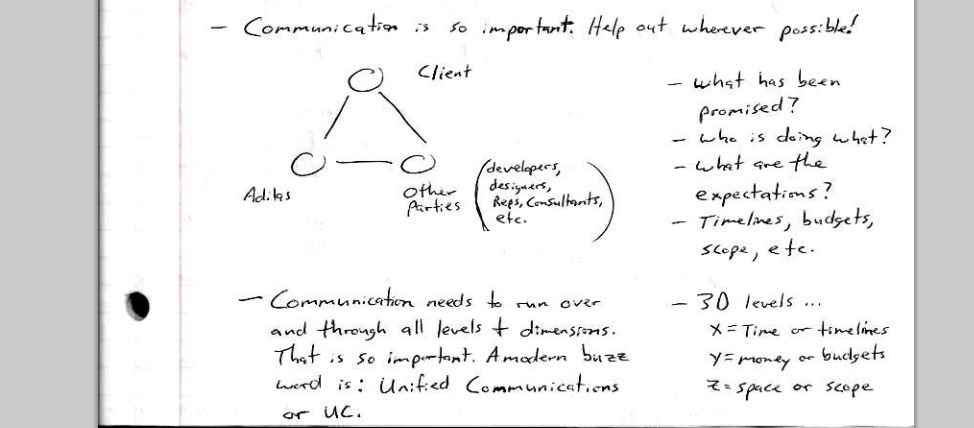 - Communication is so important. Help out wherever possible!
Client
Adilas
Other
Parties
(developers,
designers,
Reps, Consultants,
etc.)
- What has been
promised?
- Who is doing what?
- What are the
expectations?
- Timelines, budgets,
scope, etc.
- Communication needs to run over
and through all levels + dimensions.
That is so important. A modern buzz
word is: Unified Communications
or UC.
- 3D levels ...
X = Time or timelines
Y = money or budgets
Z = space or scope